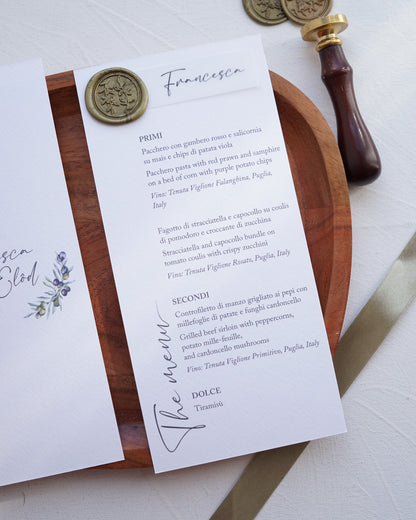 Francesca
PRIMI
Pacchero con gambero rosso e salicornia
su mais e chips di patata viola
Pacchero pasta with red prawn and samphire
on a bed of corn with purple potato chips
Vino: Tenuta Viglione Falanghina, Puglia,
Italy
Fagotto di stracciatella e capocollo su coulis
di pomodoro e croccante di zucchina
Stracciatella and capocollo bundle on
tomato coulis with crispy zucchini
Vino: Tenuta Viglione Rosato, Puglia, Italy
SECONDI
Controfiletto di manzo grigliato ai pepi con
millefoglie di patate e funghi cardoncello
Grilled beef sirloin with peppercorns,
potato mille-feuille,
and cardoncello mushrooms
Vino: Tenuta Viglione Primitivo, Puglia, Italy
DOLCE
Tiramisù
The menu
esca
Elöd